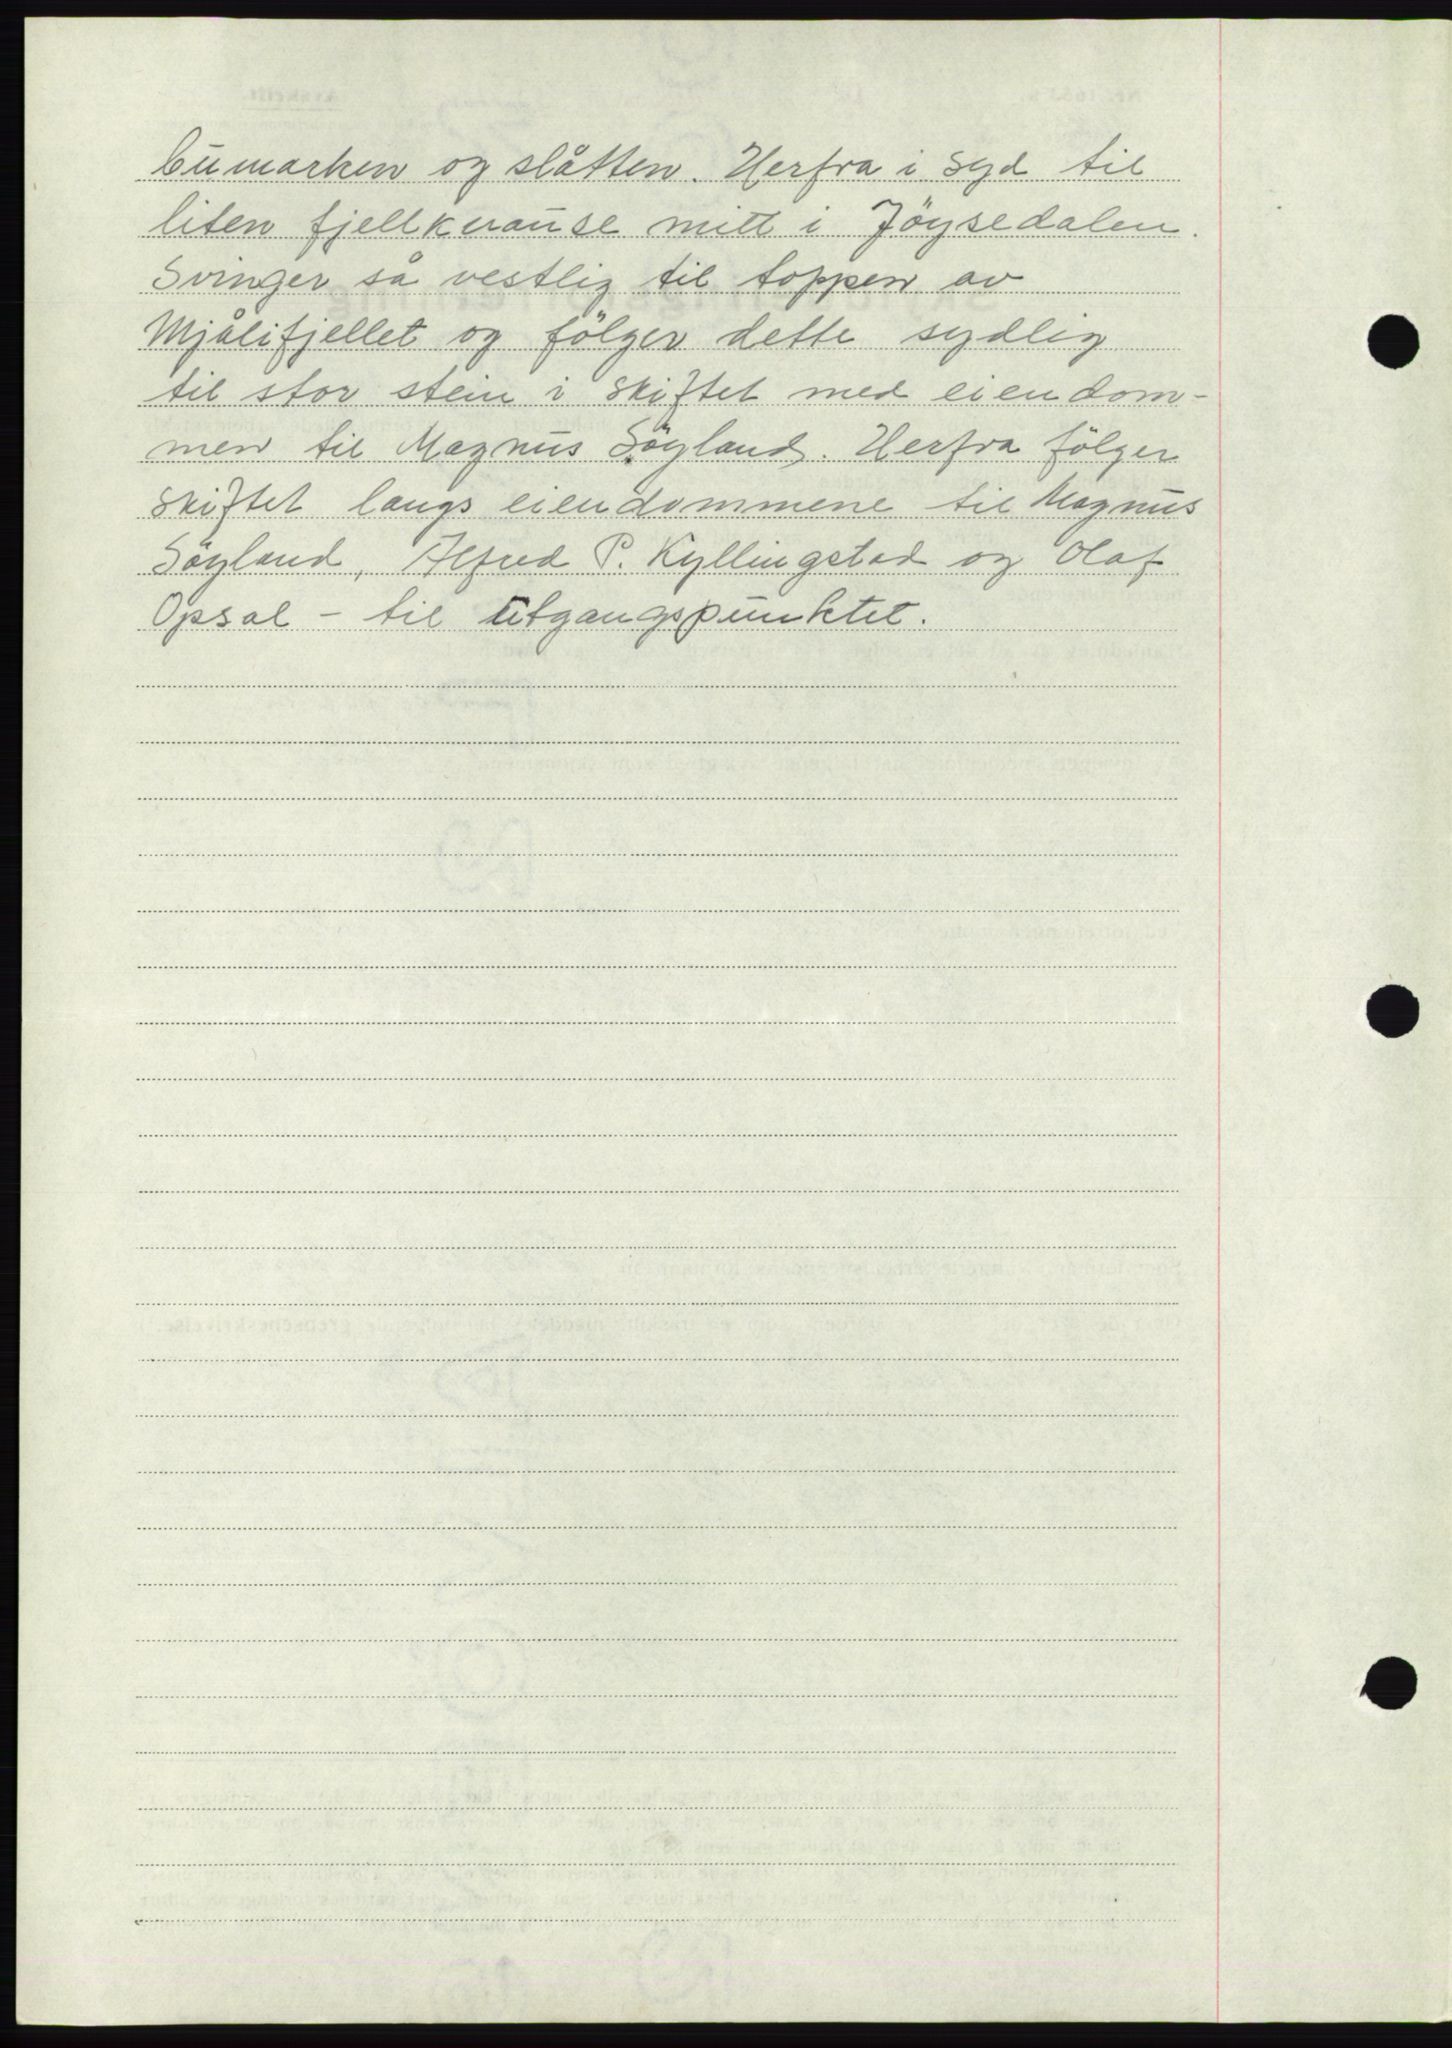 bumarken og slåtten. Herfra i syd til
liten fjellknause mitt i Jöysedalen.
Svinger så vestlig til toppen av
Mjålifjellet og fölger dette sydlig
til stor stein i skiftet med eiendom-
men til Magnus Söyland. Herfra fölger
skiftet langs eiendommene til Magnus
Söyland, Alfred P. Kyllingstad og Olaf
Opsal - til utgangspunktet.